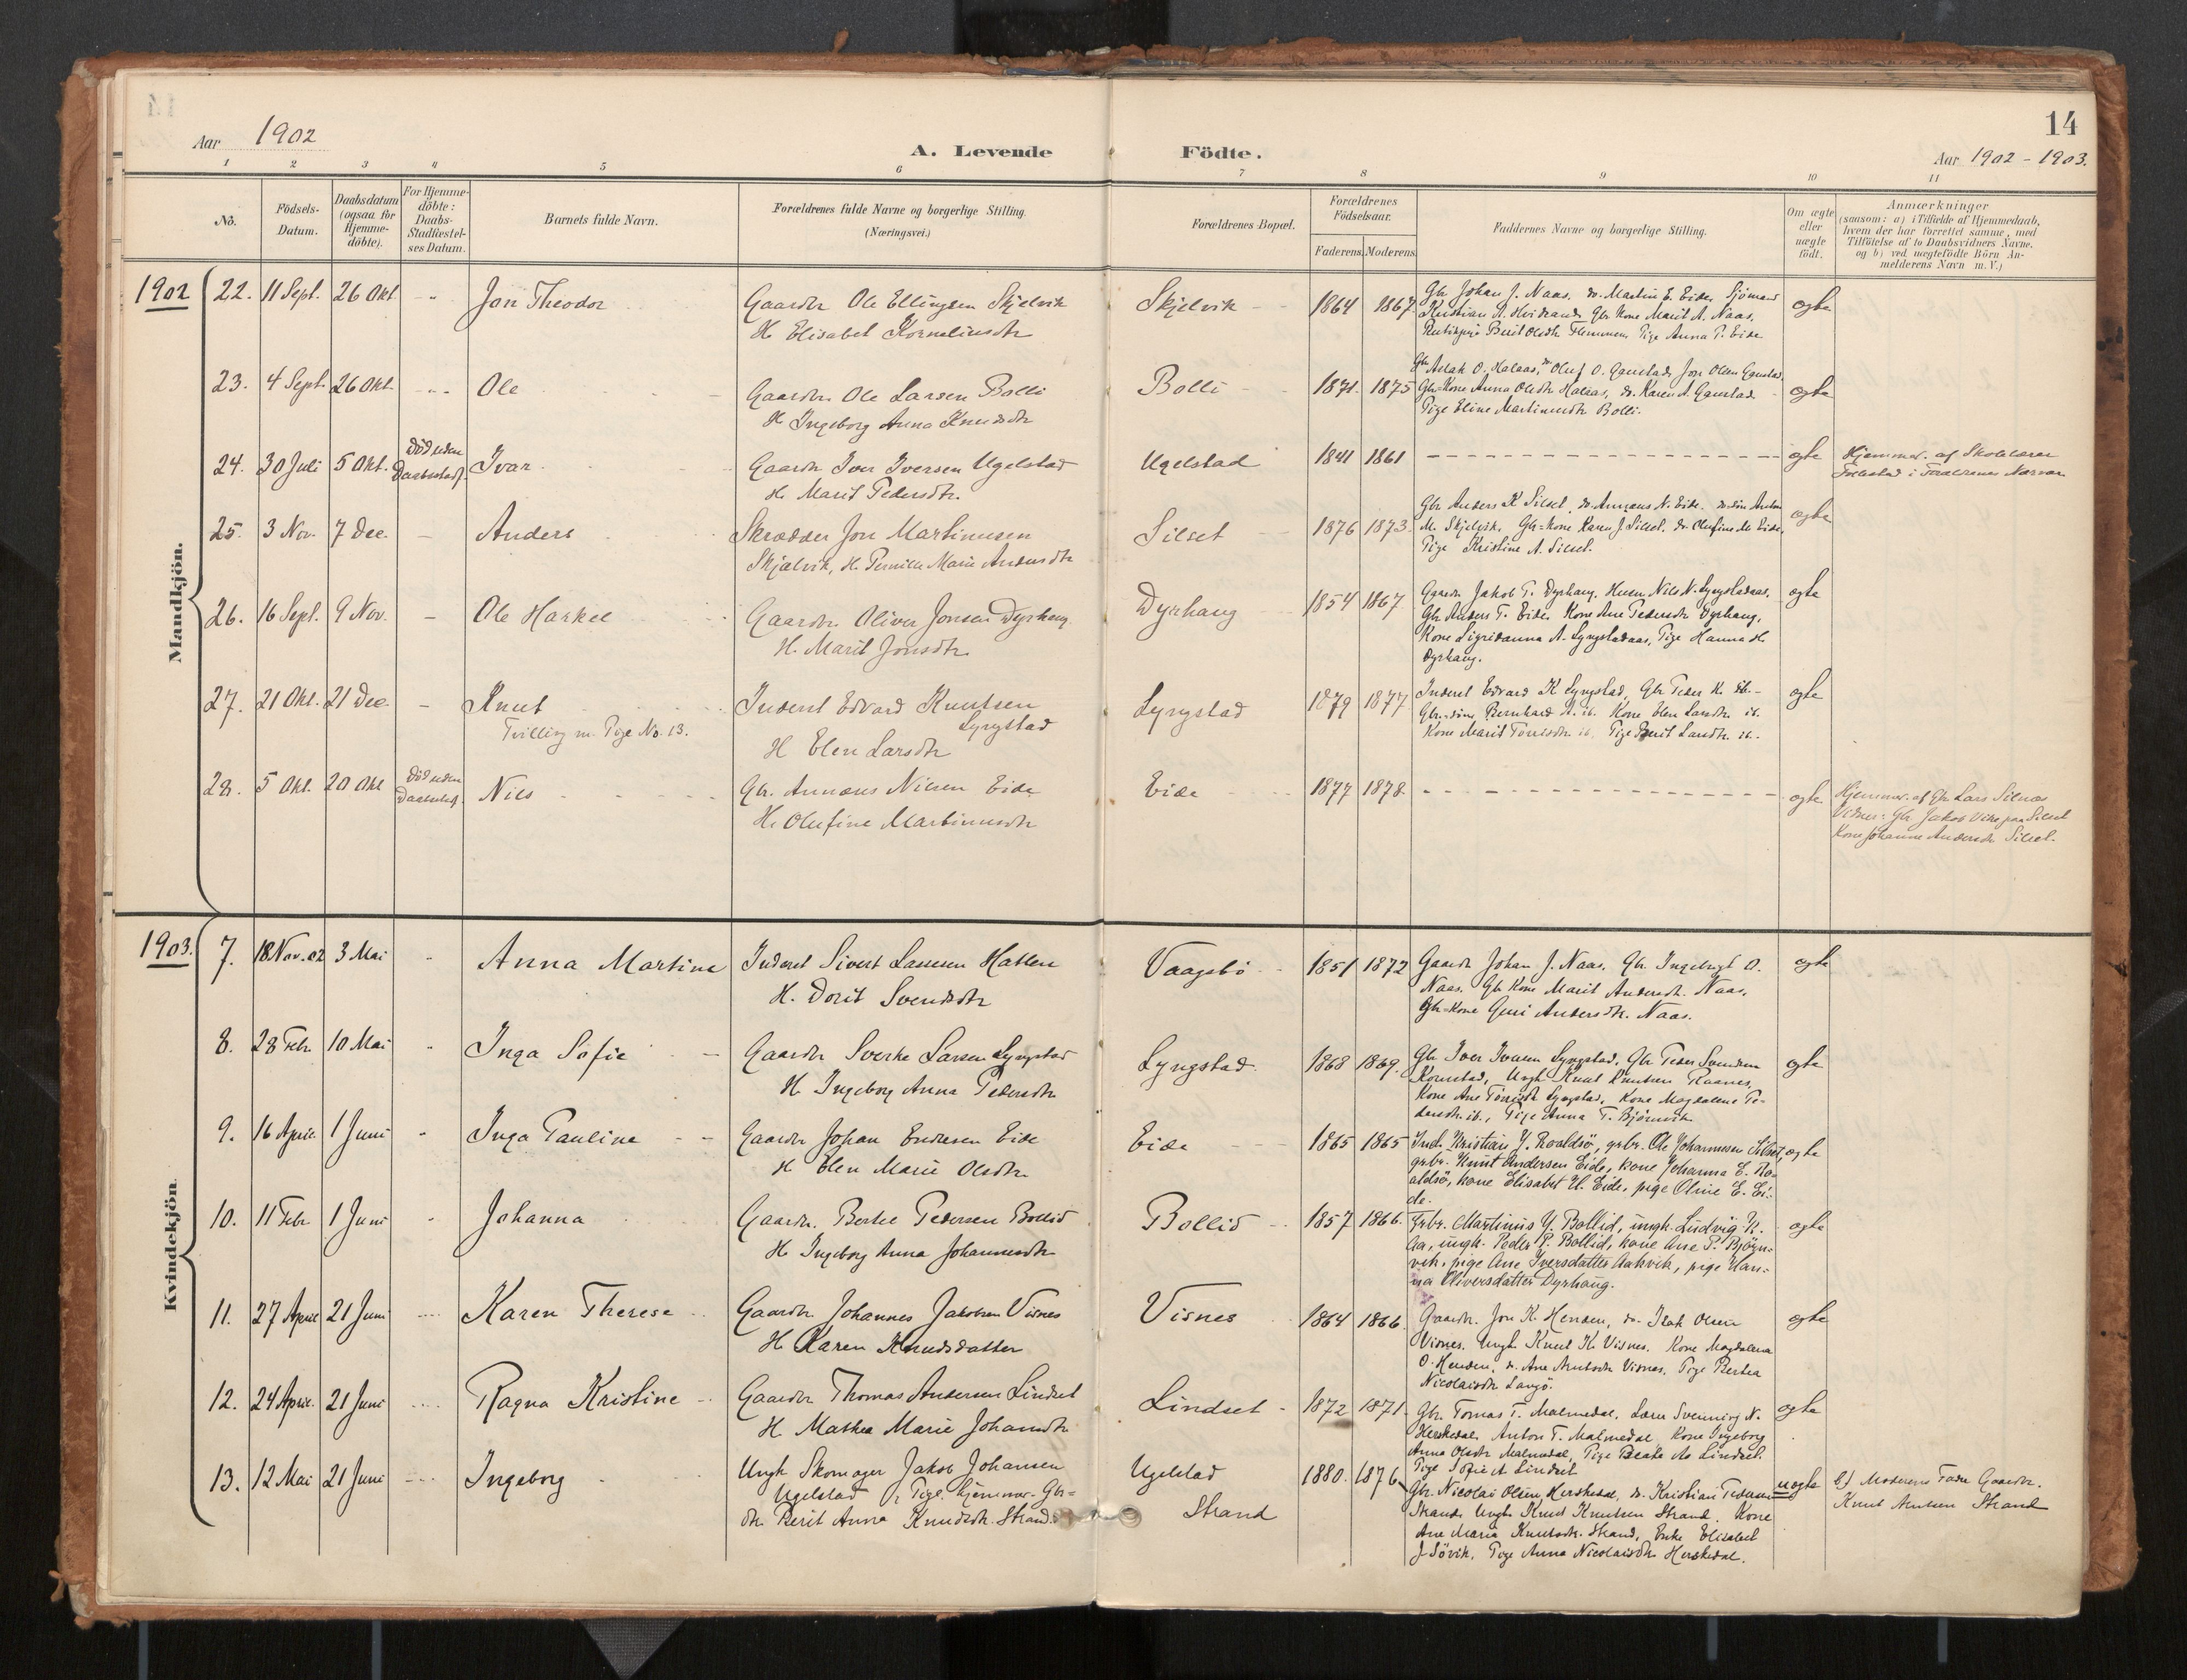 14
Aar 1902
A. Levende Födte.
Aar 1902 - 1903.
1 2 3 4 5 6 7 8 9 10 11
No.
Födsels-Datum.
Daabsdatum (ogsaa for Hjemme-döbte).
For Hjemme-döbte: Daabs-Stadfæstel-ses Datum.
Barnets fulde Navn.
Forældrenes fulde Navne og borgerlige Stilling. (Næringsvei.)
Forældrenes Bopæl.
Forældrenes Födselsaar.
Faderens. Moderens.
Faddernes Navne og borgerlige Stilling.
Om ægte eller uægte födt.
Anmærkninger
(saasom: a) i Tilfælde af Hjemmedaab, hvem der har forrettet samme, med Tilföielse af to Daabsvidners Navne. og b) ved uægtefödte Börn An-melderens Navn m.V.)
Mandkjön.
1902
22. 11 Sept. 26 Okt. Jon Theodor
Gaardbr Ole Ellingsen Skjelvik
H. Elisabet Korneliusdtr
Skjelvik 1864 1867
Gbr Johan J. Naas, do. Martin E. Eide, Sjömand
Kristian A. Hvidsand, Gbr Kone Marit A. Naas,
Berit Olsdtr Tige Anna P. Eide
ægte
23. 4 Sept. 26 Okt. Ole
Gaardbr. Ole Larsen Bolli
H. Ingeborg Anna Knudsdtr
Bolli 1871. 1875
Gbr Aslak O. Halaas, do Oluf O. Gaustad, Jon Olsen Gaustad,
Gbr-Kone Anna Olsdtr Halaas, do. Karen A. Gaustad
Pige Eline Martinusdtr Bolli.
ægte
24. 30 Juli 5 Okt. Död uden Daabsstadf. Ivar
Gaardbr Iver Iversen Ugelstad
H. Marit Pedersdtr.
Ugelstad 1841 1861
ægte
Hjemmed. af Skolelærer
i Forældrenes Nærvær
25. 3 Nov. 7 Dec. - Anders
Skrædder Jon Martinusen
Skjelvik, H. Pernille Marie Andersdtr
Silset 1876 1873
Gbr Anders K Silset, do. Annæus N. Eide, do. sön Anton
M. Skjelvik. Gbr-Kone Karen J Silset. do Olufine M. Eide,
Pige Kristine A. Silset.
ægte
26. 16 Sept. 9 Nov. - Ole Haskel
Gaardbr. Oliver Jonsen Dyrhaug
H. Marit Jonsdtr.
Dyrhaug 1854 1867
Gaardbr Jakob P. Dyrhaug. Husm Nils N. Lyngstadaas,
Gbr Anders T. Eide, Kone Ane Pedersdtr Dyrhaug,
Kone Sigridanna A. Lyngstadaas, Pige Hanna H.
Dyrhaug.
ægte
27. 21 Okt. 21 Dec. - Knut
Tvilling m. Pige No. 13.
Inderst Edvard Knutsen
Lyngstad
H Elen Larsdtr
Lyngstad 1879 1877
Inderst Edvard K Lyngstad, Gbr Peder K. ib.-
Gbr.-sön Bernhard A. ib. Kone Elen Larsdtr. ib.
Kone Marit Tönisdtr ib. Pige Berit Larsdtr. ib..
ægte
28. 5 Okt. 20 Okt Död uden Daabsstadf. Nils
Gbr. Annæus Nilsen Eide
H. Olufine Martinusdtr
Eide 1877 1878
ægte
Hjemmed. af Gbr Lars Silnes
Vidner: Gbr. Jakob Vike paa Silset
Kone Johanne Andersdtr. Silset.
Kvindekjön
1903.
7. 18 Nov. 02 3 Mai Anna Martina
Inderst Sivert Larsen Hatlen
H. Dorit Svendsdtr
Vaagsbö 1851 1872
Gaardbr Johan J. Naas, Gbr. Ingebrigt O.
Naas. Gbr Kone Marit Andersdtr. Naas,
Gbr-Kone Guri Andersdtr. Naas.
ægte
8. 28 Febr. 10 Mai Inga Sofie
Gaardbr Sverke Larsen Lyngstad
H Ingeborg Anna Pedersdtr
Lyngstad 1868 1869.
Gbr Iver Iversen Lyngstad, Gbr Peder Svendsen
Kornstad, Ungk Knut Knutsen Raanes,
Kone Ane Tönisdtr Lyngstad, Kone Magdalene Pe-
dersdtr ib., Pige Anna T. Björnvik
ægte
9. 16 April 1 Juni Inga Pauline
Gaardbr Johan Endresen Eide
H Elen Marie Olsdtr.
Eide 1865 1865
Ind. Kristian Y. Roaldsö, grbr. Ole Johannesen Silset,
grbr. Knut Andersen Eide, kone Johanna E. Ro-
aldsö, kone Elisabet H. Eide, pige Oline E. Ei-
de.
ægte
10. 11 Febr 1 Juni Johanna
Gaardbr. Bertel Pedersen Bollid
H Ingeborg Anna Johannesdtr
Bollid 1857 1866.
Grbr. Martinus Y. Bollid, ungk. Ludvig K.
Aa, ungk. Peder P. Bollid, kone Ane P. Björn-
vik, pige Ane Iversdatter Aakvik, pige Han-
na Oliversdatter Dyrhaug.
ægte
11. 27 April 21 Juni Karen Therese
Gaardbr Johannes Jakobsen Visnes
H Karen Knudsdatter
Visnes 1864 1866
Gaardbr. Jon K. Henden, do. Isak Olsen
Visnes. Ungk Knut K. Visnes. Kone Magdalena
O. Henden, do. Ane Arntsdtr Visnes, Pige Berthea
Nicolaisdtr Langö.
ægte
12. 24 April. 21 Juni Ragna Kristine
Gaardbr Thomas Andersen Lindset
H. Mathea Marie Johansdtr
Lindset 1872 1871
Gbr. Tomas T. Malmedal, Lærer Svenning N.
Herskedal, Anton T. Malmedal, Kone Ingeborg
Anna Olsdtr Malmedal, Pige Beate As Lindset.
Pige Sofie A Lindset
ægte
13. 12 Mai 21 Juni Ingeborg
Ungk Skomager Jakob Johansen
Ugelstad Pige. hjemmev. Gbr-
dtr. Berit Anna Knudsdtr. Strand.
Ugelstad
Strand
1880. 1876
Gbr. Nicolai Olsen Herskedal, do. Kristian Pedersen
Strand, Ungk Knut Knutsen Strand. Kone
Ane Maria Knutsdtr. Strand, Enke Elisabet
J Sövik, Pige Anna Nicolaisdtr Herskedal.
uægte
b) Moderens Fader Gaardbr.
Knut Arntsen Strand